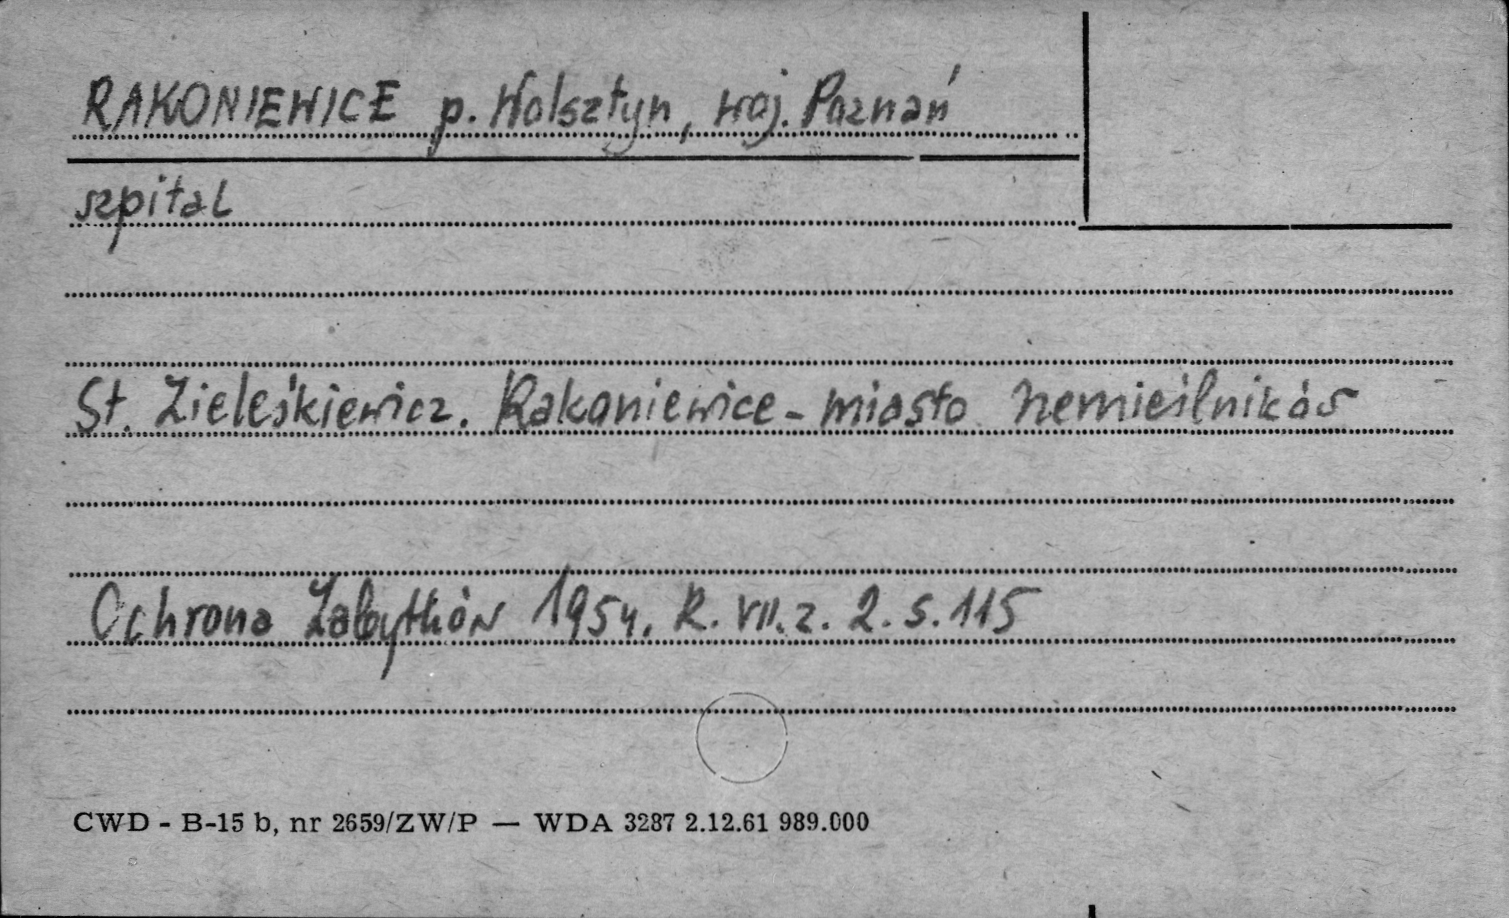 RAKONIEWICE p. Wolsztyn, woj. Poznań
szpital
St. Zieleśkiewicz. Rakoniewice - miasto rzemieślników
Ochrona Zabytków 1954. R. VII. z. 2. s. 115
CWD - B-15 b, nr 2659/ZW/P — WDA 3287 2.12.61 989.000